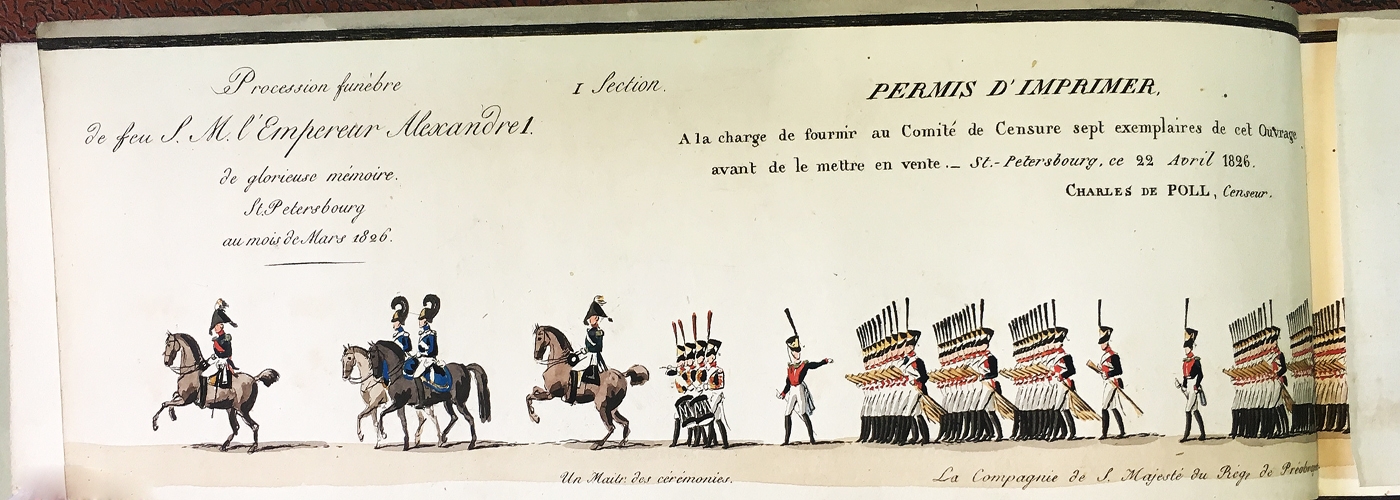 Procession funèbre
de feu S. M. l'Empereur Alexandre I.
de glorieuse mémoire.
St. Petersbourg
au mois de Mars 1826.
I Section.
PERMIS D'IMPRIMER,
A la charge de fournir au Comité de Censure sept exemplaires de cet Ouvrage
avant de le mettre en vente._ St.-Petersbourg, ce 22 Avril 1826.
CHARLES DE POLL, Censeur.
Un Maitr. des cérémonies.
La Compagnie de S. Majesté du Rég. de